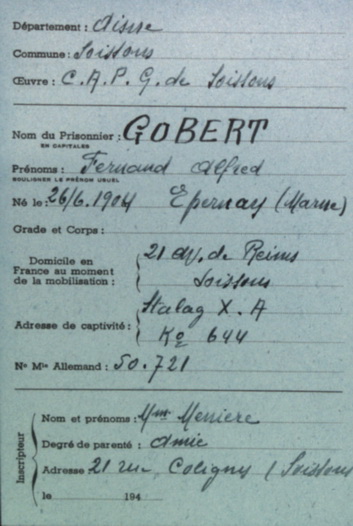 Département : Aisne
Commune : Soissons
Œuvre : C.A.P.G. de Soissons
Nom du Prisonnier : GOBERT
EN CAPITALES
Prénoms : Fernand Alfred
SOULIGNER LE PRÉNOM USUEL
Né le : 26/6.1904 Epernay (Marne)
Grade et Corps :
Domicile en France au moment de la mobilisation : 21 av. de Reims
Soissons
Adresse de captivité : Stalag X. A
Ko 644
No Mle Allemand : 50.721
Inscripteur
Nom et prénoms : Mme Meniere
Degré de parenté : amie
Adresse 21 rue Coligny (Soissons
le 194